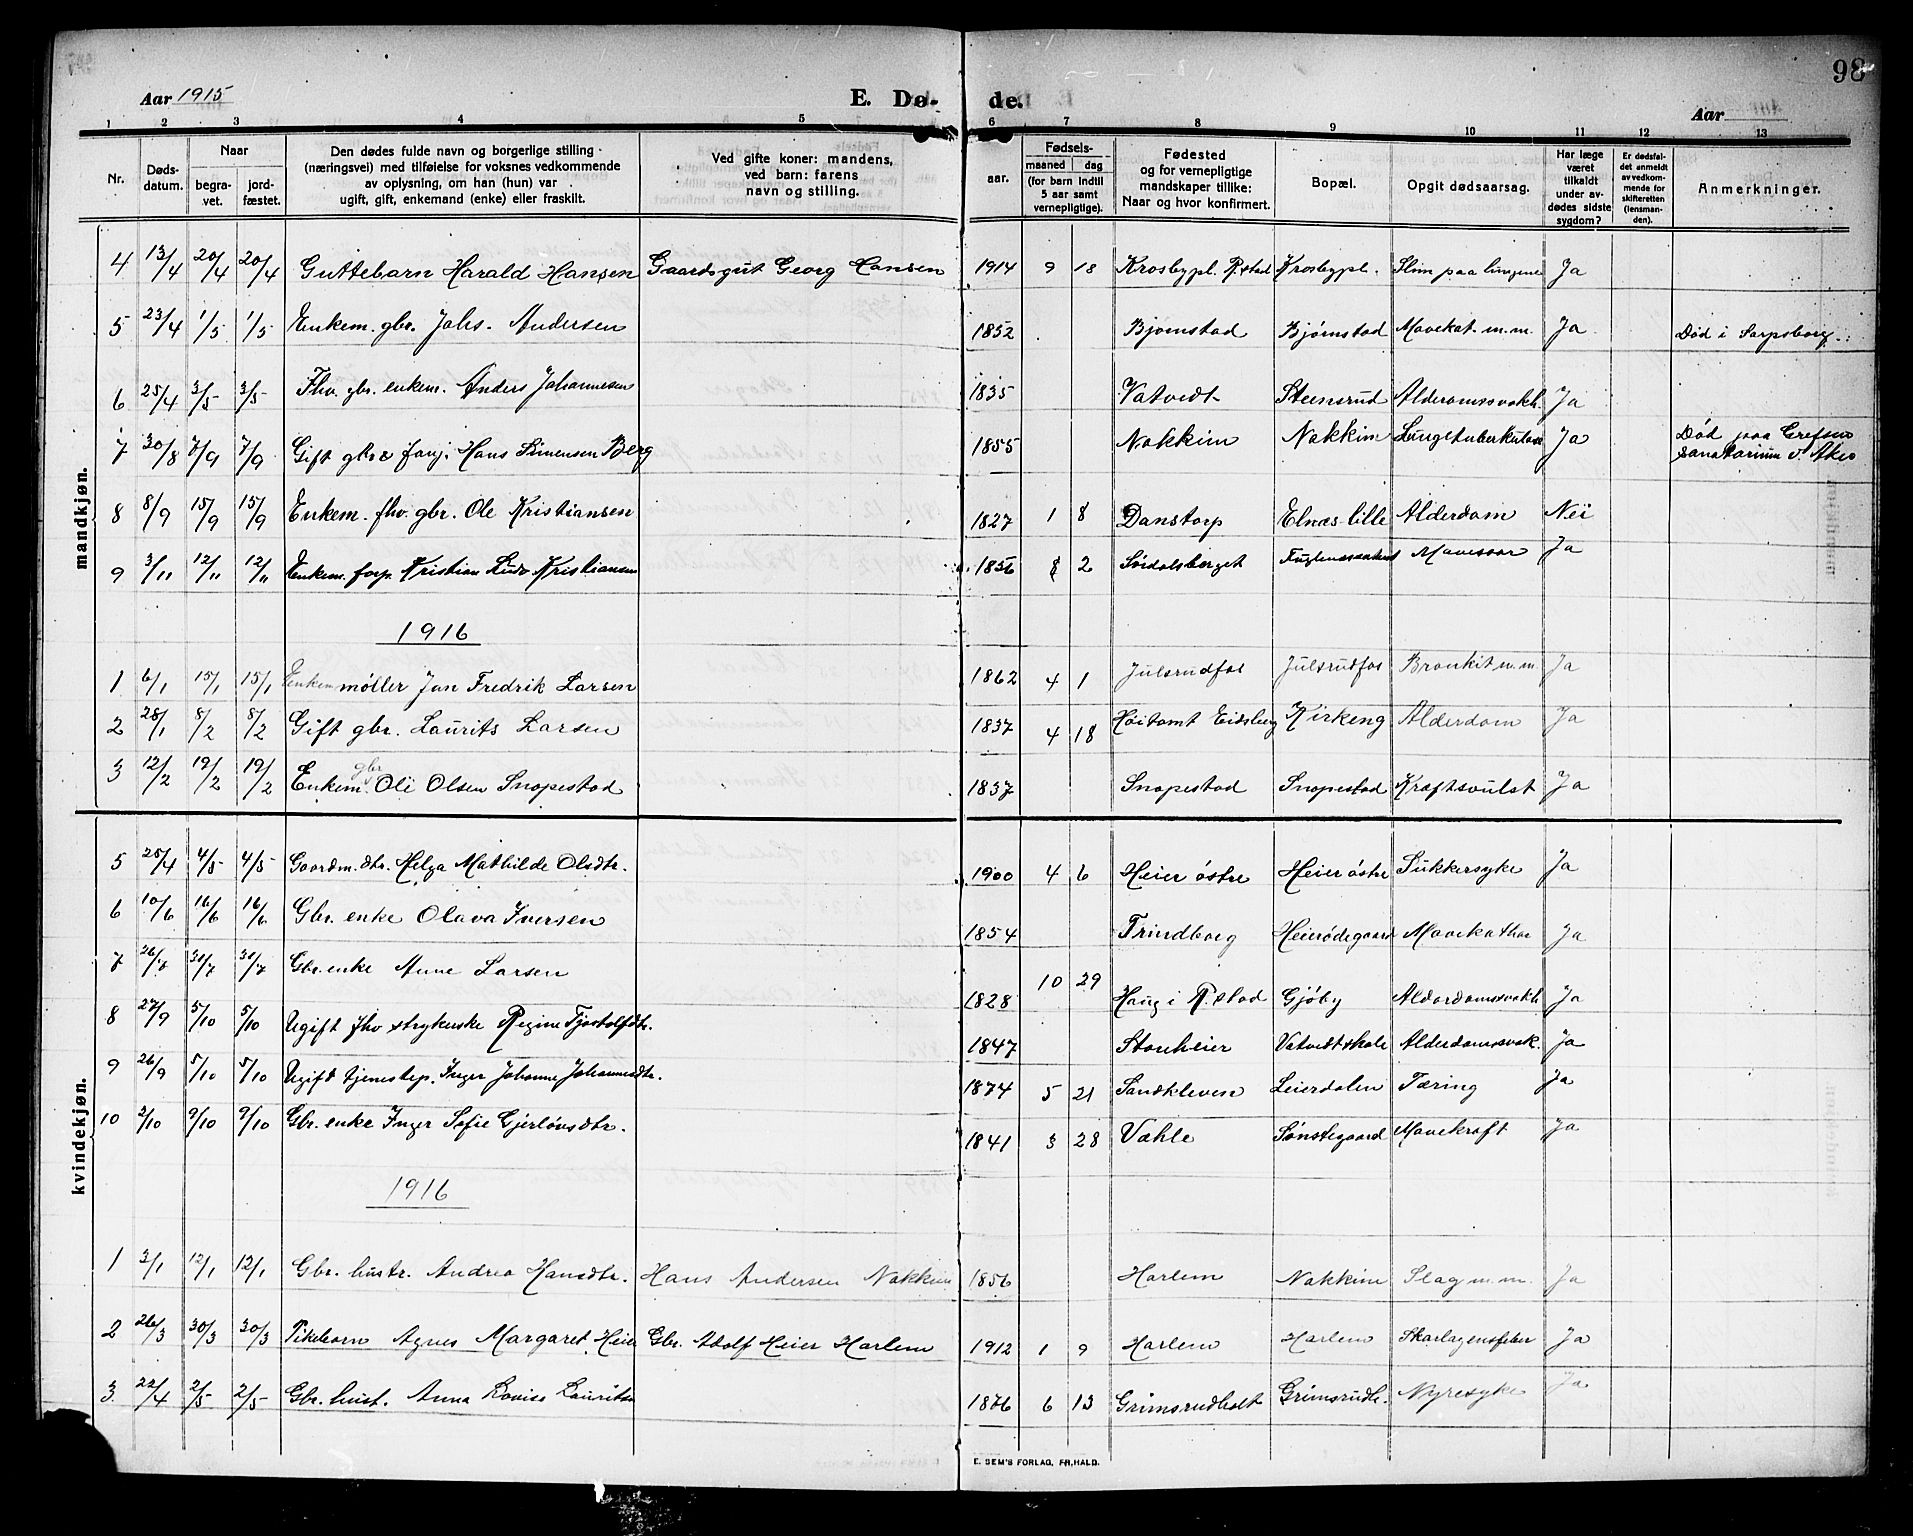 98
Aar 1915 E. Dø- de. Aar
1 2 3 4 5 6 7 8 9 10 11 12 13
Nr. Døds-datum. Naar begra-vet. jord-fæstet. Den dødes fulde navn og borgerlige stilling (næringsvei) med tilføielse for voksnes vedkommende av oplysning, om han (hun) var ugift, gift, enkemand (enke) eller fraskilt. Ved gifte koner: mandens, ved barn: farens navn og stilling. aar. Fødsels- maaned dag (for barn indtil 5 aar samt vernepligtige). Fødested og for vernepligtige mandskaper tillike: Naar og hvor konfirmert. Bopæl. Opgit dødsaarsag. Har læge været tilkaldt under av-dødes sidste sygdom? Er dødsfal-det anmeldt av vedkom-mende for skifteretten (lensman-den). Anmerkninger.
mandkjøn.
4 13/4 20/4 20/4 Guttebarn Harald Hansen Gaardsgut Georg Hansen 1914 9 18 Krosbypl. R.stad Krosbypl. Slim paa lungene Ja
5 23/4 1/5 1/5 Enkem. gbr. Johs. Andersen 1852 Bjørnstad Bjørnstad Mavekat. m.m. Ja Død i Sarpsborg.
6 25/4 3/5 3/5 Fhv. gbr. enkem. Anders Johannesen 1835 Vatvedt Steensrud Alderdomssvakh. Ja
7 30/8 7/9 7/9 Gift gbr. Hans Simensen Berg 1855 Nakkim Nakkim Lungetuberkulose Ja Død paa Grefsen sanatorium v. Aker
8 8/9 15/9 15/9 Enkem. fhv. gbr. Ole Kristiansen 1827 1 8 Danstorp Elnæs lille Alderdom Nei
9 3/11 12/11 12/11 Enkem. forp. Kristian Ludv. Kristiansen 1856 8 2 Sördalsberget Mavesaar Ja
1916
1 6/1 15/1 15/1 Enkem møller Jan Fredrik Larsen 1862 4 1 Julsrudfos Julsrudfos Bronkit m.m. Ja
2 28/1 8/2 8/2 Gift gbr. Laurits Larsen 1837 4 18 Høitomt Eidsberg Kirkeng Alderdom Ja
3 12/2 19/2 19/2 Enkem. gbr Ole Olsen Snopestad 1837 Snopestad Snopestad Kræftsvulst Ja
kvindekjøn.
5 28/4 4/5 4/5 Gaardm.dtr. Helga Mathilde Olsdtr. 1900 4 6 Heier østre Heier østre Sukkersyke Ja
6 10/6 16/6 16/6 Gbr. enke Olava Iversen 1854 Trindborg Heierødegaard Mavekathar Ja
7 26/7 30/7 30/7 Gbr. enke Anne Larsen 1828 10 29 Haug i R.stad Gjøby Alderdomssvakh. Ja
8 27/9 5/10 5/10 Ugift fhv strykerske Regine Tjostolfsdtr. 1847 Stonheier Vatvedtskole Alderdomssvak. Ja
9 26/9 5/10 5/10 Ugift tjenestep. Inger Johanne Johannesdtr. 1874 5 21 Sandkleven Leierdalen Tæring Ja
10 2/10 9/10 9/10 Gbr. enke Inger Sofie Gjerløvsdtr. 1841 3 28 Vahle Sønstegaard Mavekræft Ja
1916
1 3/1 12/1 12/1 Gbr. hustr. Andrea Hansdtr. Hans Andersen Nakkim 1856 Harlem Nakkim Slag m.m. Ja
2 26/3 30/3 30/3 Pikebarn Agnes Margaret Heier Gbr. Adolf Heier Harlem 1912 1 9 Harlem Harlem Skarlagensfeber Ja
3 22/4 2/5 2/5 Gbr. hust. Anna Lovise Lauritsen 1876 6 13 Grimsrudholt Grimsrudh. Nyresyke Ja
E. SEM'S FORLAG, FR.HALD.